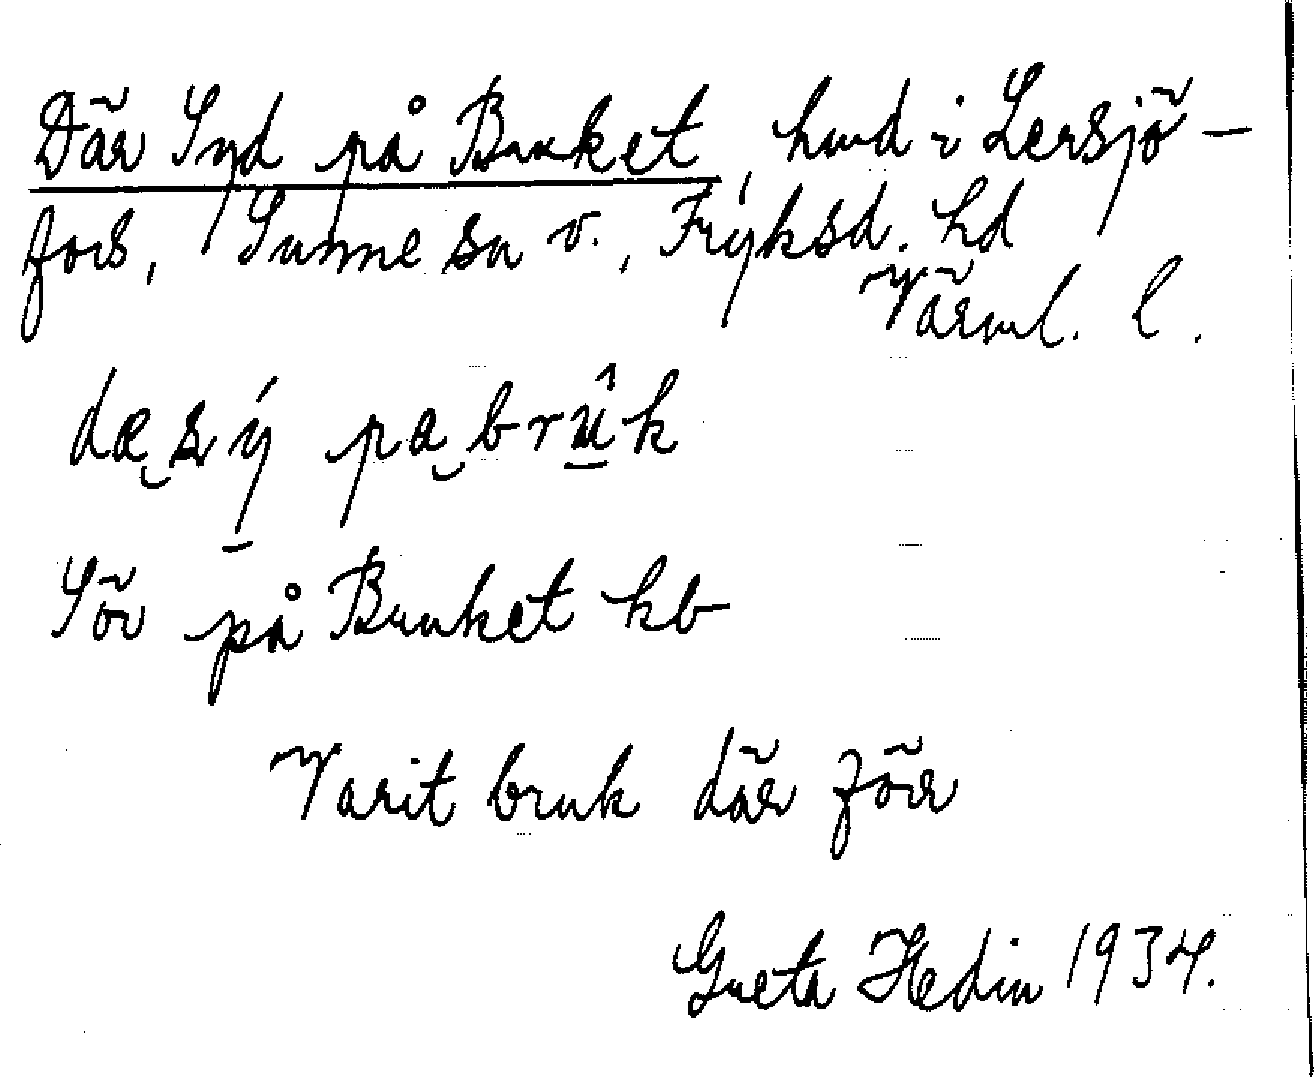 Där Syd på Bruket, hmd i Lersjö-
fors, Sunne sn v., Fryksd. hd
Värml. l.
dæ̮ s ý̱ pa̮ brû̱k
Sör på Bruket kb
Varit bruk där förr
Greta Hedin 1934.